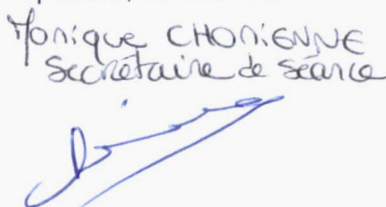 Monique CHONIENNE
Secrétaire de séance